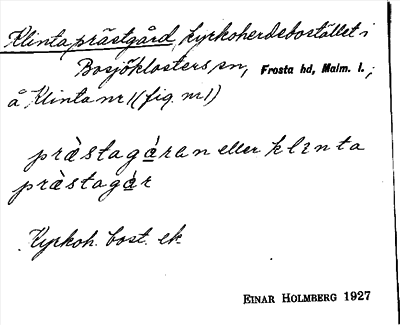 Klinta prästgård, kyrkoherdebostället i
Bosjöklosters sn, Frosta hd, Malm. l.;
å Klinta nr 1 (fig. nr 1)
præ̀stagáran eller klınta
præ̀stagár
Kyrkoh. bost. ek.
EINAR HOLMBERG 1927